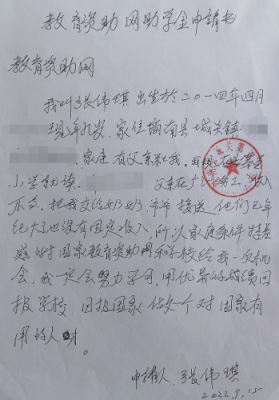 教育资助网助学金申請书
教育资助网
我叫張伟琪 出生於二〇一四年四月
現年九岁 家住 南县城关鎮
家庭有父亲和我
小学勤读 父亲在 工 收入
不多 把我交给奶奶 爷爷接送 他们已年
纪大了也没有固定收入 所以家庭条件特差
感谢国家教育资助网和学校给我一次机
会 我一定会努力学习 用优异的成绩回
报学校 回报国家 做一个对国家有
用的人才。
申請人 張伟琪
2022.9.15